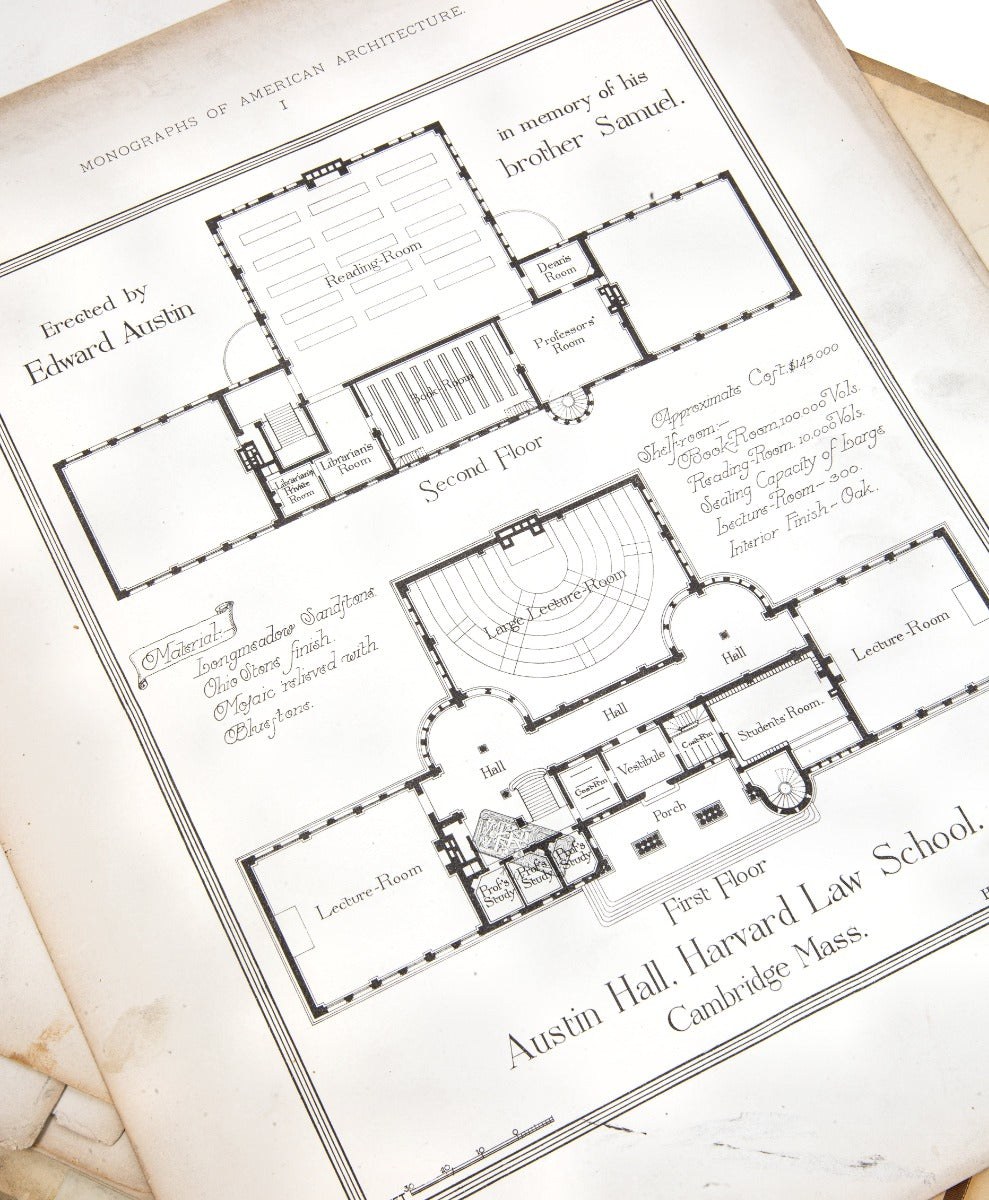 MONOGRAPHS OF AMERICAN ARCHITECTURE.
I
Erected by
Edward Austin
in memory of his
brother Samuel.
Reading-Room
Dean's
Room
Professors'
Room
Book-Room
Librarian's
Room
Librarian's
Private
Room
Second Floor
Approximate Cost. $145.000
Shelf-room:-
Book-Room. 100.000 Vols.
Reading-Room. 10.000 Vols.
Seating Capacity of Large
Lecture-Room- 300.
Interior Finish- Oak.
Material:-
Longmeadow Sandstone
Ohio Stone finish.
Mosaic relieved with
Bluestone.
Large Lecture-Room
Hall
Lecture-Room
Hall
Students' Room.
Hall
Coat-Rm
Vestibule
Coat-Rm
Porch
Lecture-Room
Prof's
Study
Prof's
Study
Prof's
Study
First Floor
Austin Hall, Harvard Law School.
Cambridge Mass.
30 20 10 0